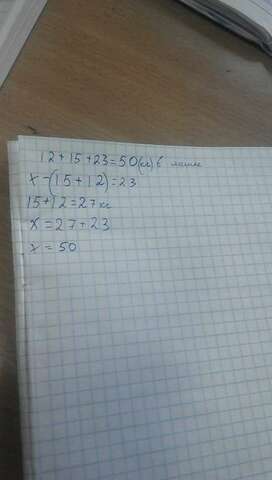 12+15+23=50(кг) в мешке
x-(15+12)=23
15+12=27кг
x=27+23
x=50